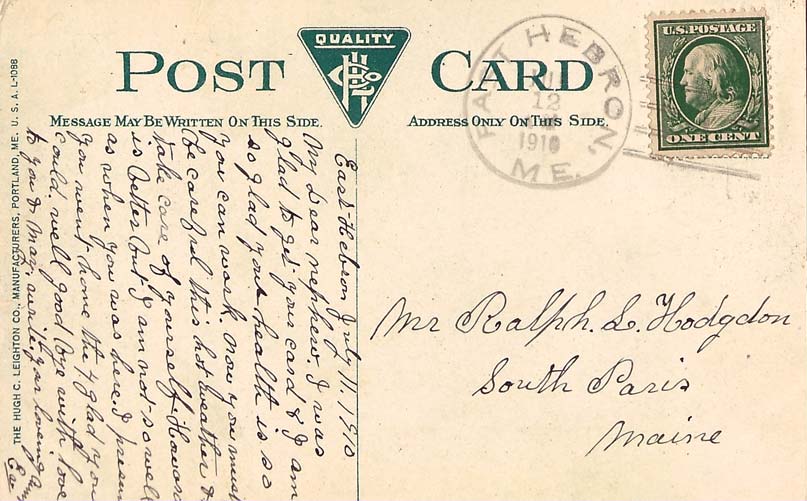 QUALITY
POST CARD
U.S. POSTAGE
ONE CENT
EAST HEBRON, ME.
12
1910
MESSAGE MAY BE WRITTEN ON THIS SIDE.
ADDRESS ONLY ON THIS SIDE.
THE HUGH C. LEIGHTON CO., MANUFACTURERS, PORTLAND, ME. U. S. A. L-1086
East Hebron July 11. 1910
My Dear nephew. I was
glad to get your card & I am
so glad your health is so
you can work. now you must
be careful this hot weather &
take care of yourself. Howard
is better but I am not so well
as when you was here. I
you went home the 4 glad you
could. well good bye with love
to you & May. write. your loving
Mr Ralph. L. Hodgdon
South Paris
Maine